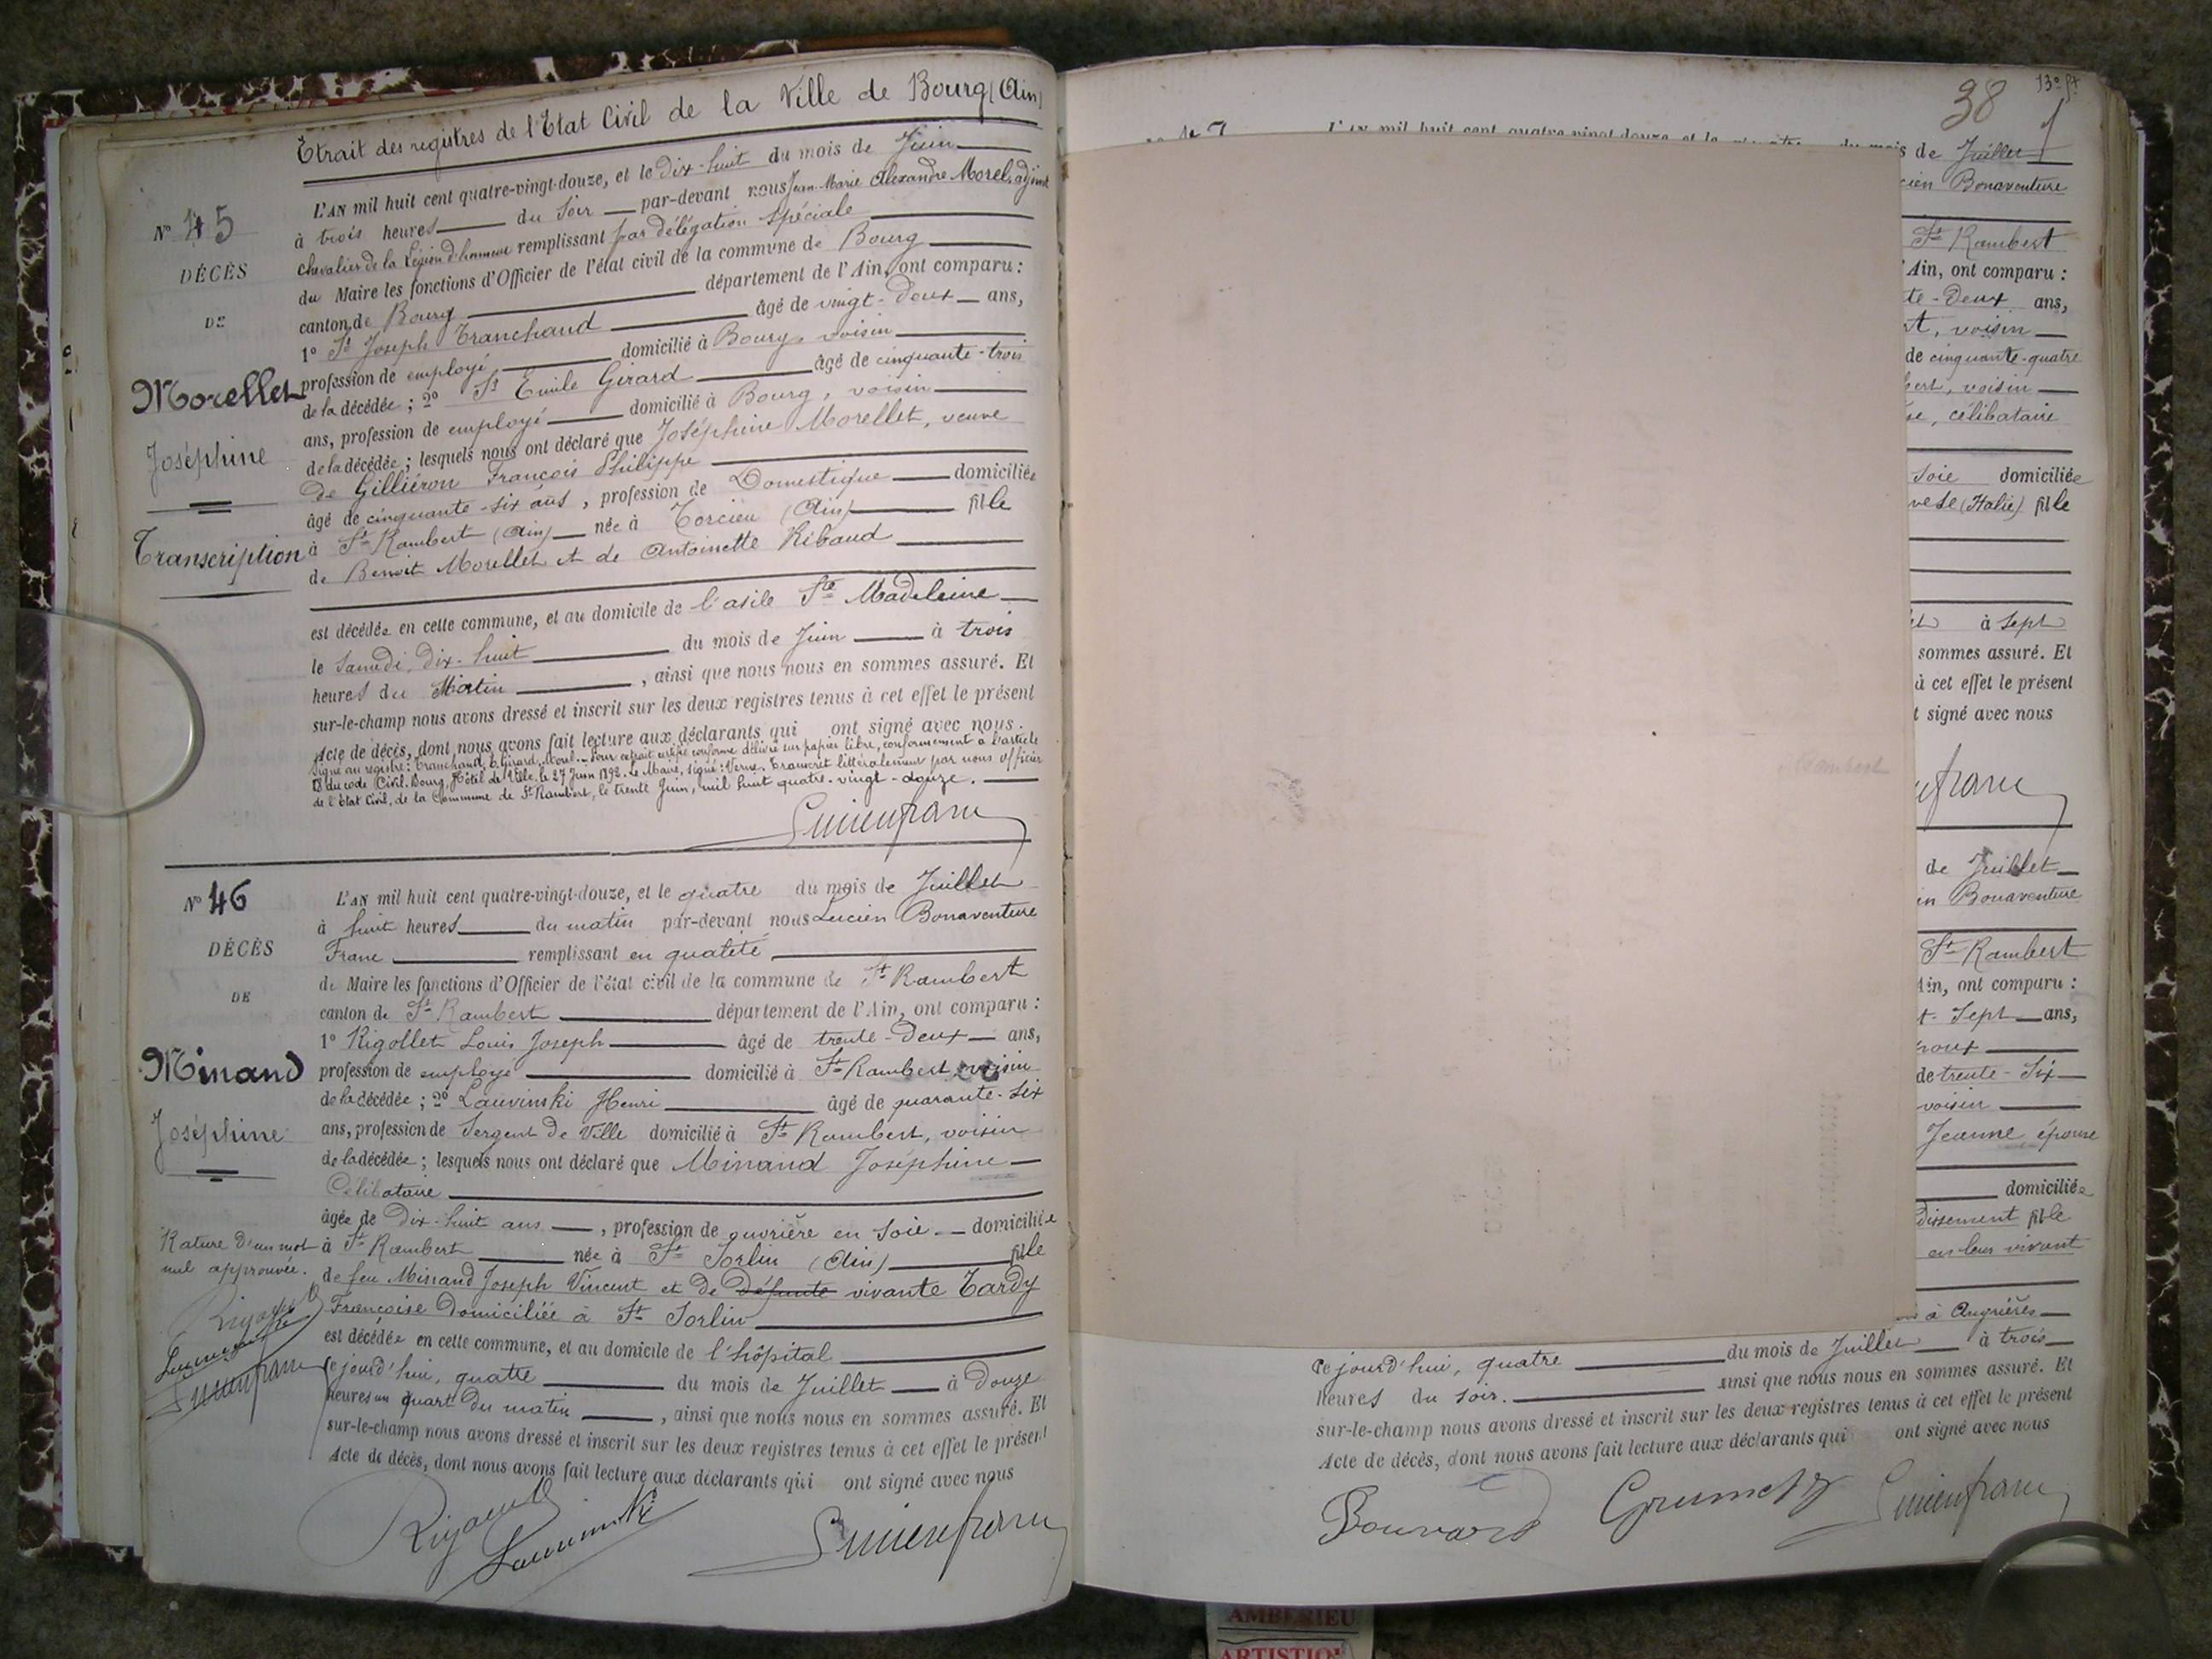 Etrait des registres de l'Etat Civil de la Ville de Bourg (Ain)
N° 45
DÉCÈS
DE
Morellet
Joséphine
Transcription
L'AN mil huit cent quatre-vingt-douze, et le dix-huit du mois de Juin
à trois heures du soir par-devant nous Jean-Marie Alexandre Morel, adjoint
chevalier de la Légion d'honneur remplissant par délégation spéciale
du Maire les fonctions d'Officier de l'état civil de la commune de Bourg
canton de Bourg département de l'Ain, ont comparu :
1° St Joseph Tranchand âgé de vingt-deux ans,
profession de employé domicilié à Bourg, voisin
de la décédée ; 2° St Emile Girard âgé de cinquante-trois
ans, profession de employé domicilié à Bourg, voisin
de la décédée ; lesquels nous ont déclaré que Joséphine Morellet, veuve
de Gilliéron François Philippe
âgé de cinquante-six ans, profession de Domestique domiciliée
à St Rambert (Ain) née à Torcieu (Ain) fille
de Benoit Morellet et de Antoinette Ribaud
est décédée en cette commune, et au domicile de l'asile Ste Madeleine
le Samedi, dix-huit du mois de Juin à trois
heures du Matin, ainsi que nous nous en sommes assuré. Et
sur-le-champ nous avons dressé et inscrit sur les deux registres tenus à cet effet le présent
Acte de décès, dont nous avons fait lecture aux déclarants qui ont signé avec nous.
Signé au registre : Tranchand, E. Girard, Morel. Pour extrait certifié conforme délivré sur papier libre, conformément à l'article
du code Civil. Bourg, Hôtel de Ville, le 27 Juin 1892. Le Maire, signé : Verne. Transcrit littéralement par nous officier
de l'Etat Civil, de la Commune de St Rambert, le trente Juin, mil huit quatre-vingt-douze.
Lucien franc
N° 46
DÉCÈS
DE
Minand
Joséphine
L'AN mil huit cent quatre-vingt-douze, et le quatre du mois de Juillet
à huit heures du matin par-devant nous Lucien Bonaventure
Franc remplissant en qualité
de Maire les fonctions d'Officier de l'état civil de la commune de St Rambert
canton de St Rambert département de l'Ain, ont comparu :
1° Rigollet Louis Joseph âgé de trente-deux ans,
profession de employé domicilié à St Rambert, voisin
de la décédée ; 2° Lauvinski Henri âgé de quarante-six
ans, profession de Sergent de Ville domicilié à St Rambert, voisin
de la décédée ; lesquels nous ont déclaré que Minand Joséphine
Célibataire
âgée de Dix-huit ans, profession de ouvrière en soie domiciliée
à St Rambert née à St Sorlin (Ain) fille
de feu Minand Joseph Vincent et de Défunte vivante Tardy
Françoise domiciliée à St Sorlin
est décédée en cette commune, et au domicile de l'hôpital
ce jourd'hui, quatre du mois de Juillet à Douze
heures un quart du matin, ainsi que nous nous en sommes assuré. Et
sur-le-champ nous avons dressé et inscrit sur les deux registres tenus à cet effet le présent
Acte de décès, dont nous avons fait lecture aux déclarants qui ont signé avec nous
Rature d'un mot
nul approuvée.
Lucien franc
38
13e ft
L'AN mil huit cent quatre-vingt-douze, et le quatre du mois de Juillet
cien Bonaventure
St Rambert
l'Ain, ont comparu :
te-Deux ans,
t, voisin
de cinquante-quatre
bert, voisin
se, célibataire
soie domiciliée
vese (Italie) fille
à Sept
sommes assuré. Et
à cet effet le présent
t signé avec nous
franc
de Juillet
en Bonaventure
St Rambert
Ain, ont comparu :
t-Sept ans,
poux
de trente-Six
voisin
Jeanne, épouse
domiciliée
dissement fille
en leur vivant
à Angrières
Ce jourd'hui, quatre du mois de Juillet à trois
heures du soir. ainsi que nous nous en sommes assuré. Et
sur-le-champ nous avons dressé et inscrit sur les deux registres tenus à cet effet le présent
Acte de décès, dont nous avons fait lecture aux déclarants qui ont signé avec nous
Bouvard Lucien franc
AMBERIEU
ARTISTIQU